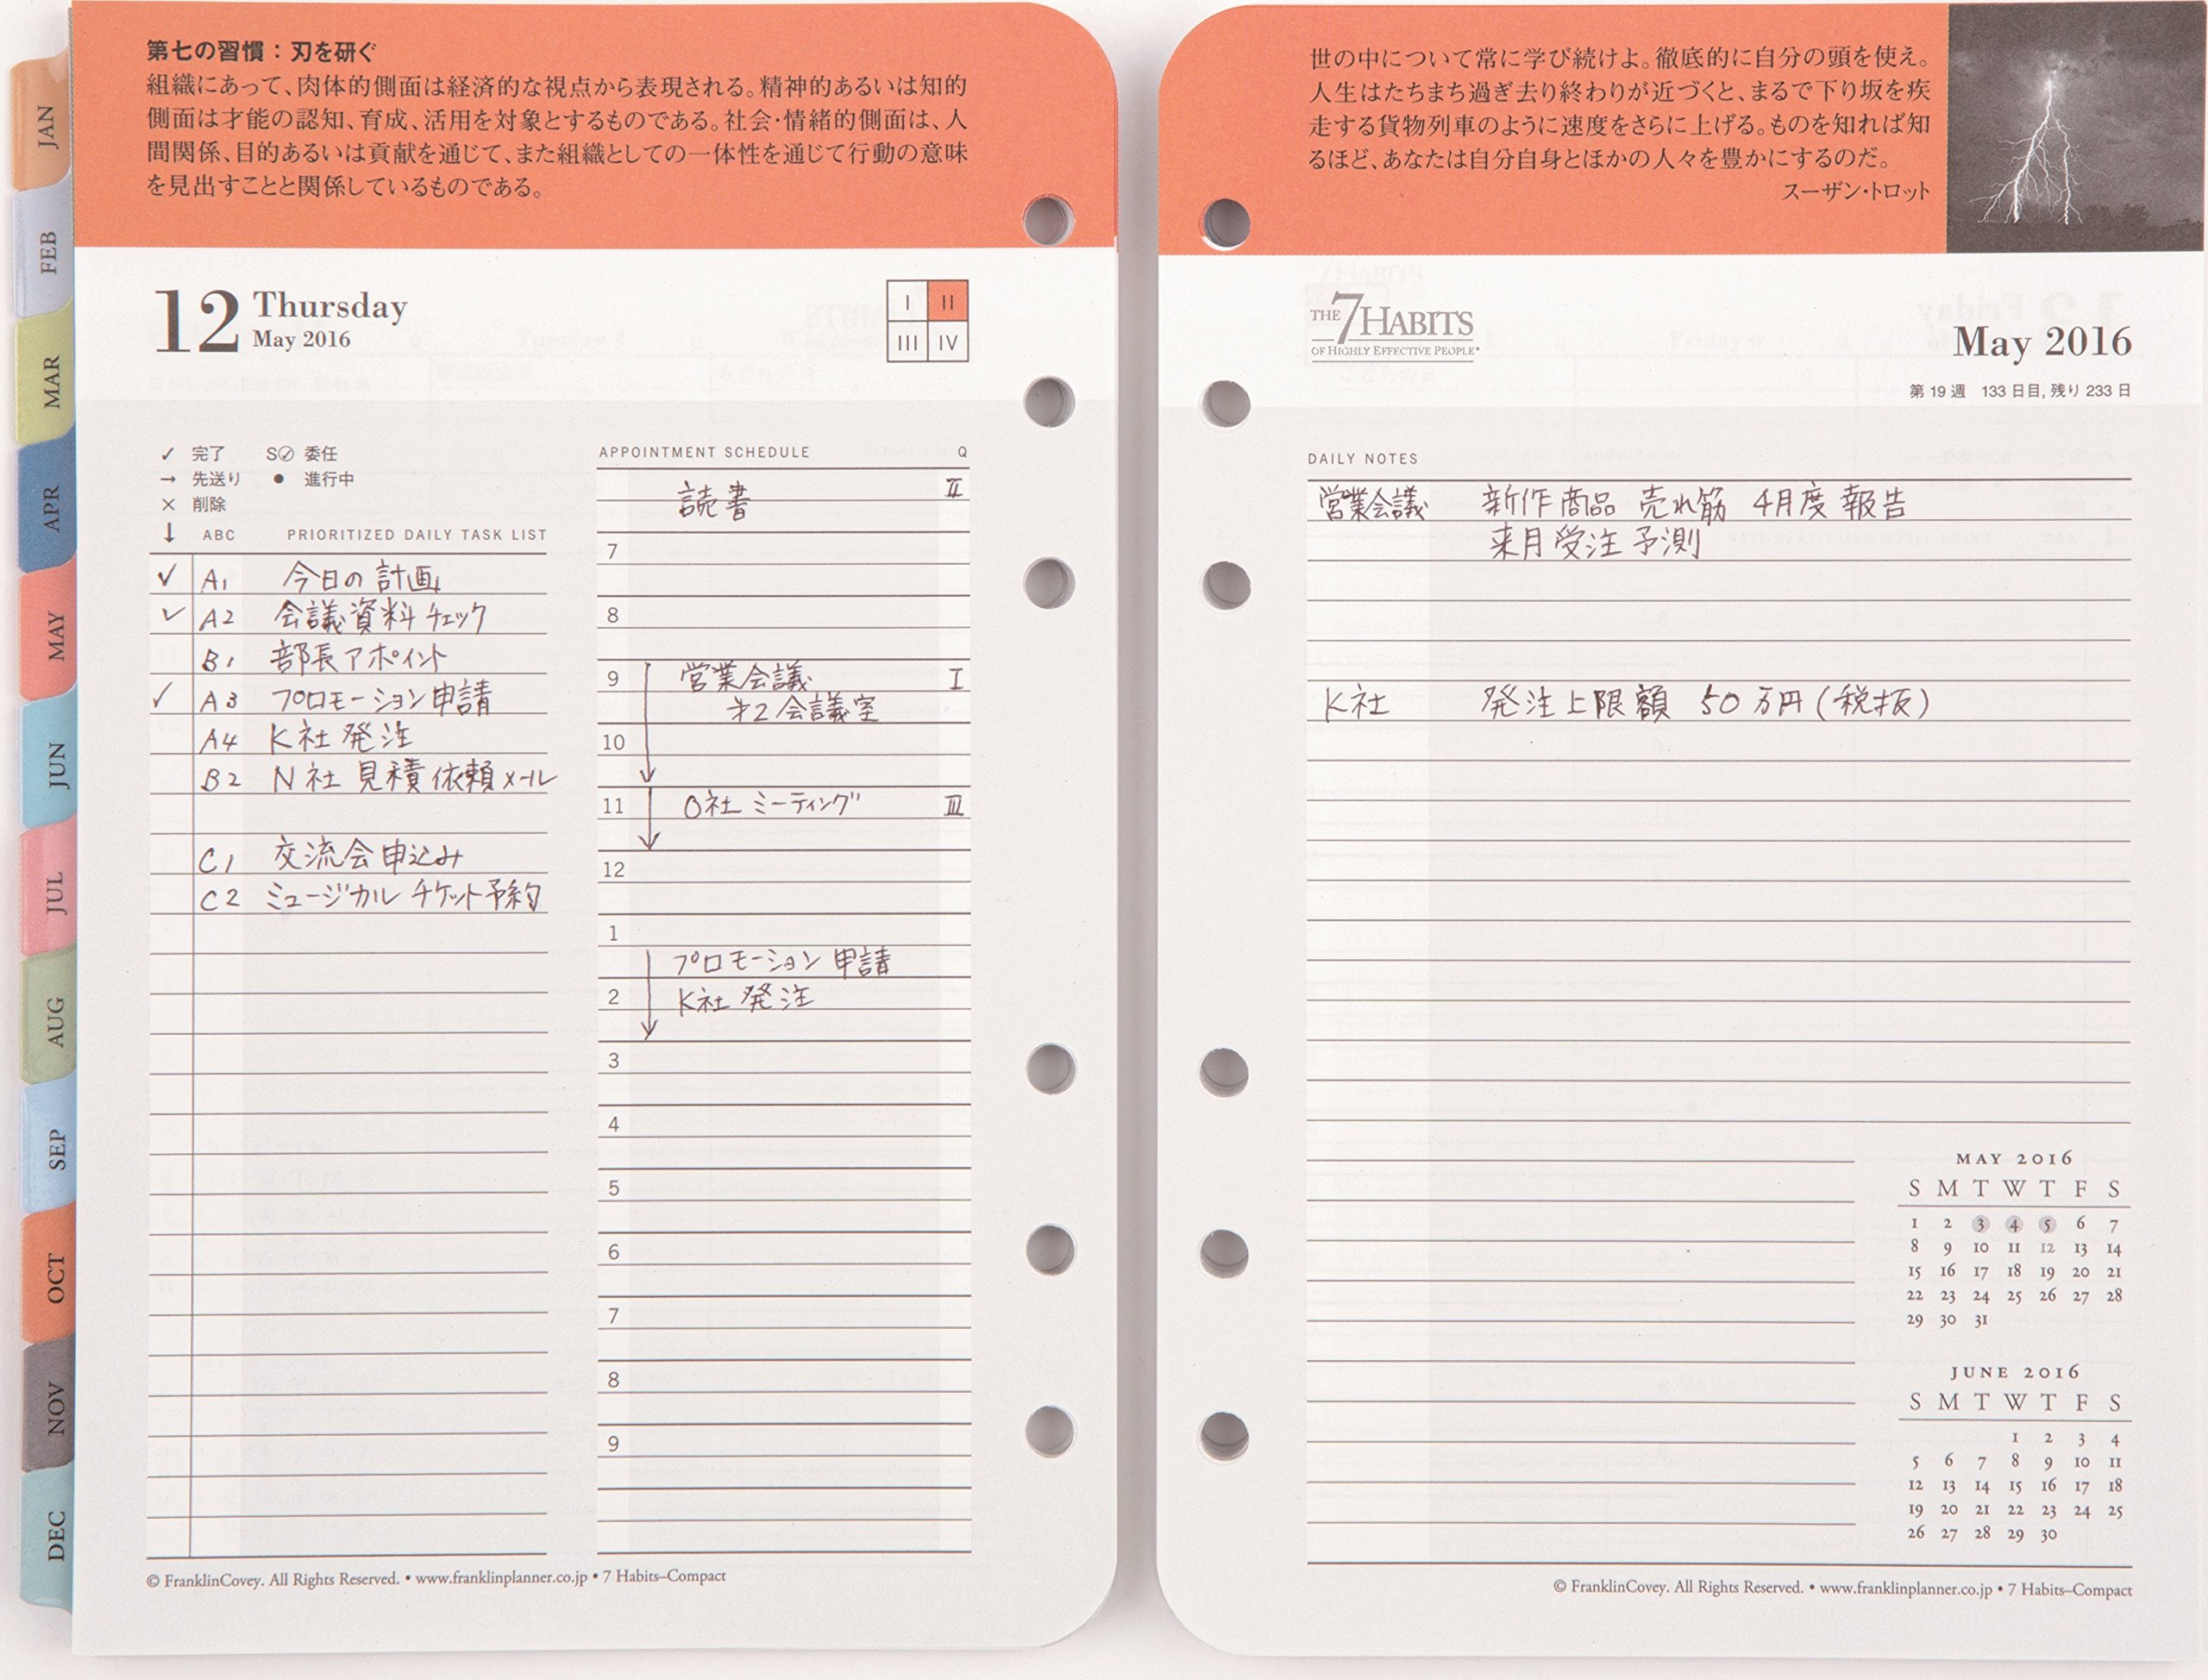 JAN
FEB
MAR
APR
MAY
JUN
JUL
AUG
SEP
OCT
NOV
DEC
第七の習慣：刃を研ぐ
組織にあって、肉体的側面は経済的な視点から表現される。精神的あるいは知的
側面は才能の認知、育成、活用を対象とするものである。社会・情緒的側面は、人
間関係、目的あるいは貢献を通じて、また組織としての一体性を通じて行動の意味
を見出すことと関係しているものである。
12 Thursday
May 2016
I II
III IV
✓ 完了 S✓ 委任
→ 先送り ● 進行中
× 削除
↓ ABC PRIORITIZED DAILY TASK LIST
✓ A1 今日の計画
✓ A2 会議資料チェック
B1 部長アポイント
✓ A3 プロモーション申請
A4 K社発注
B2 N社見積依頼メール
C1 交流会申込み
C2 ミュージカルチケット予約
APPOINTMENT SCHEDULE Q
読書 II
7
8
9 営業会議 I
才2会議室
10
11 O社ミーティング III
12
1
プロモーション申請
2 K社発注
3
4
5
6
7
8
9
© FranklinCovey. All Rights Reserved. • www.franklinplanner.co.jp • 7 Habits–Compact
世の中について常に学び続けよ。徹底的に自分の頭を使え。
人生はたちまち過ぎ去り終わりが近づくと、まるで下り坂を疾
走する貨物列車のように速度をさらに上げる。ものを知れば知
るほど、あなたは自分自身とほかの人々を豊かにするのだ。
スーザン・トロット
THE 7 HABITS
OF HIGHLY EFFECTIVE PEOPLE®
May 2016
第 19 週 133 日目, 残り 233 日
DAILY NOTES
営業会議 新作商品 売れ筋 4月度報告
来月受注予測
K社 発注上限額 50万円(税抜)
MAY 2016
S M T W T F S
1 2 3 4 5 6 7
8 9 10 11 12 13 14
15 16 17 18 19 20 21
22 23 24 25 26 27 28
29 30 31
JUNE 2016
S M T W T F S
1 2 3 4
5 6 7 8 9 10 11
12 13 14 15 16 17 18
19 20 21 22 23 24 25
26 27 28 29 30
© FranklinCovey. All Rights Reserved. • www.franklinplanner.co.jp • 7 Habits–Compact